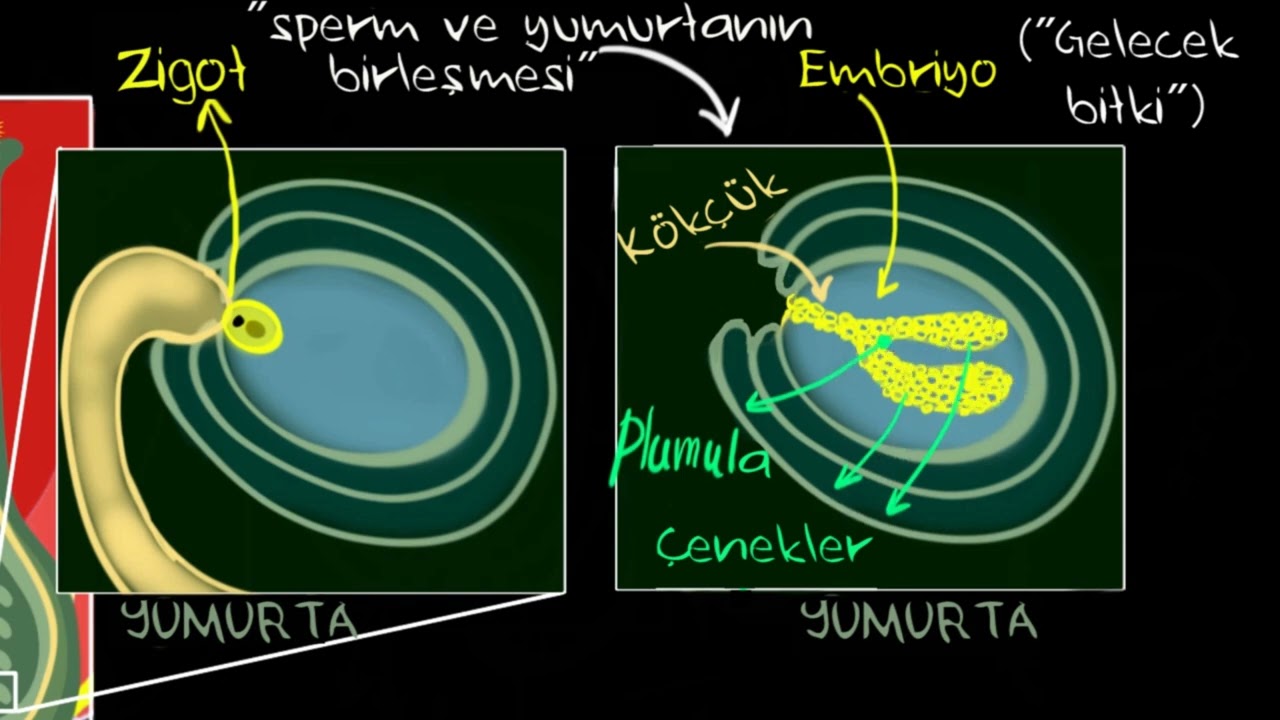 "sperm ve yumurtanın
birleşmesi"
Zigot
Embriyo
("Gelecek
bitki")
kökçük
Plumula
Çenekler
YUMURTA
YUMURTA